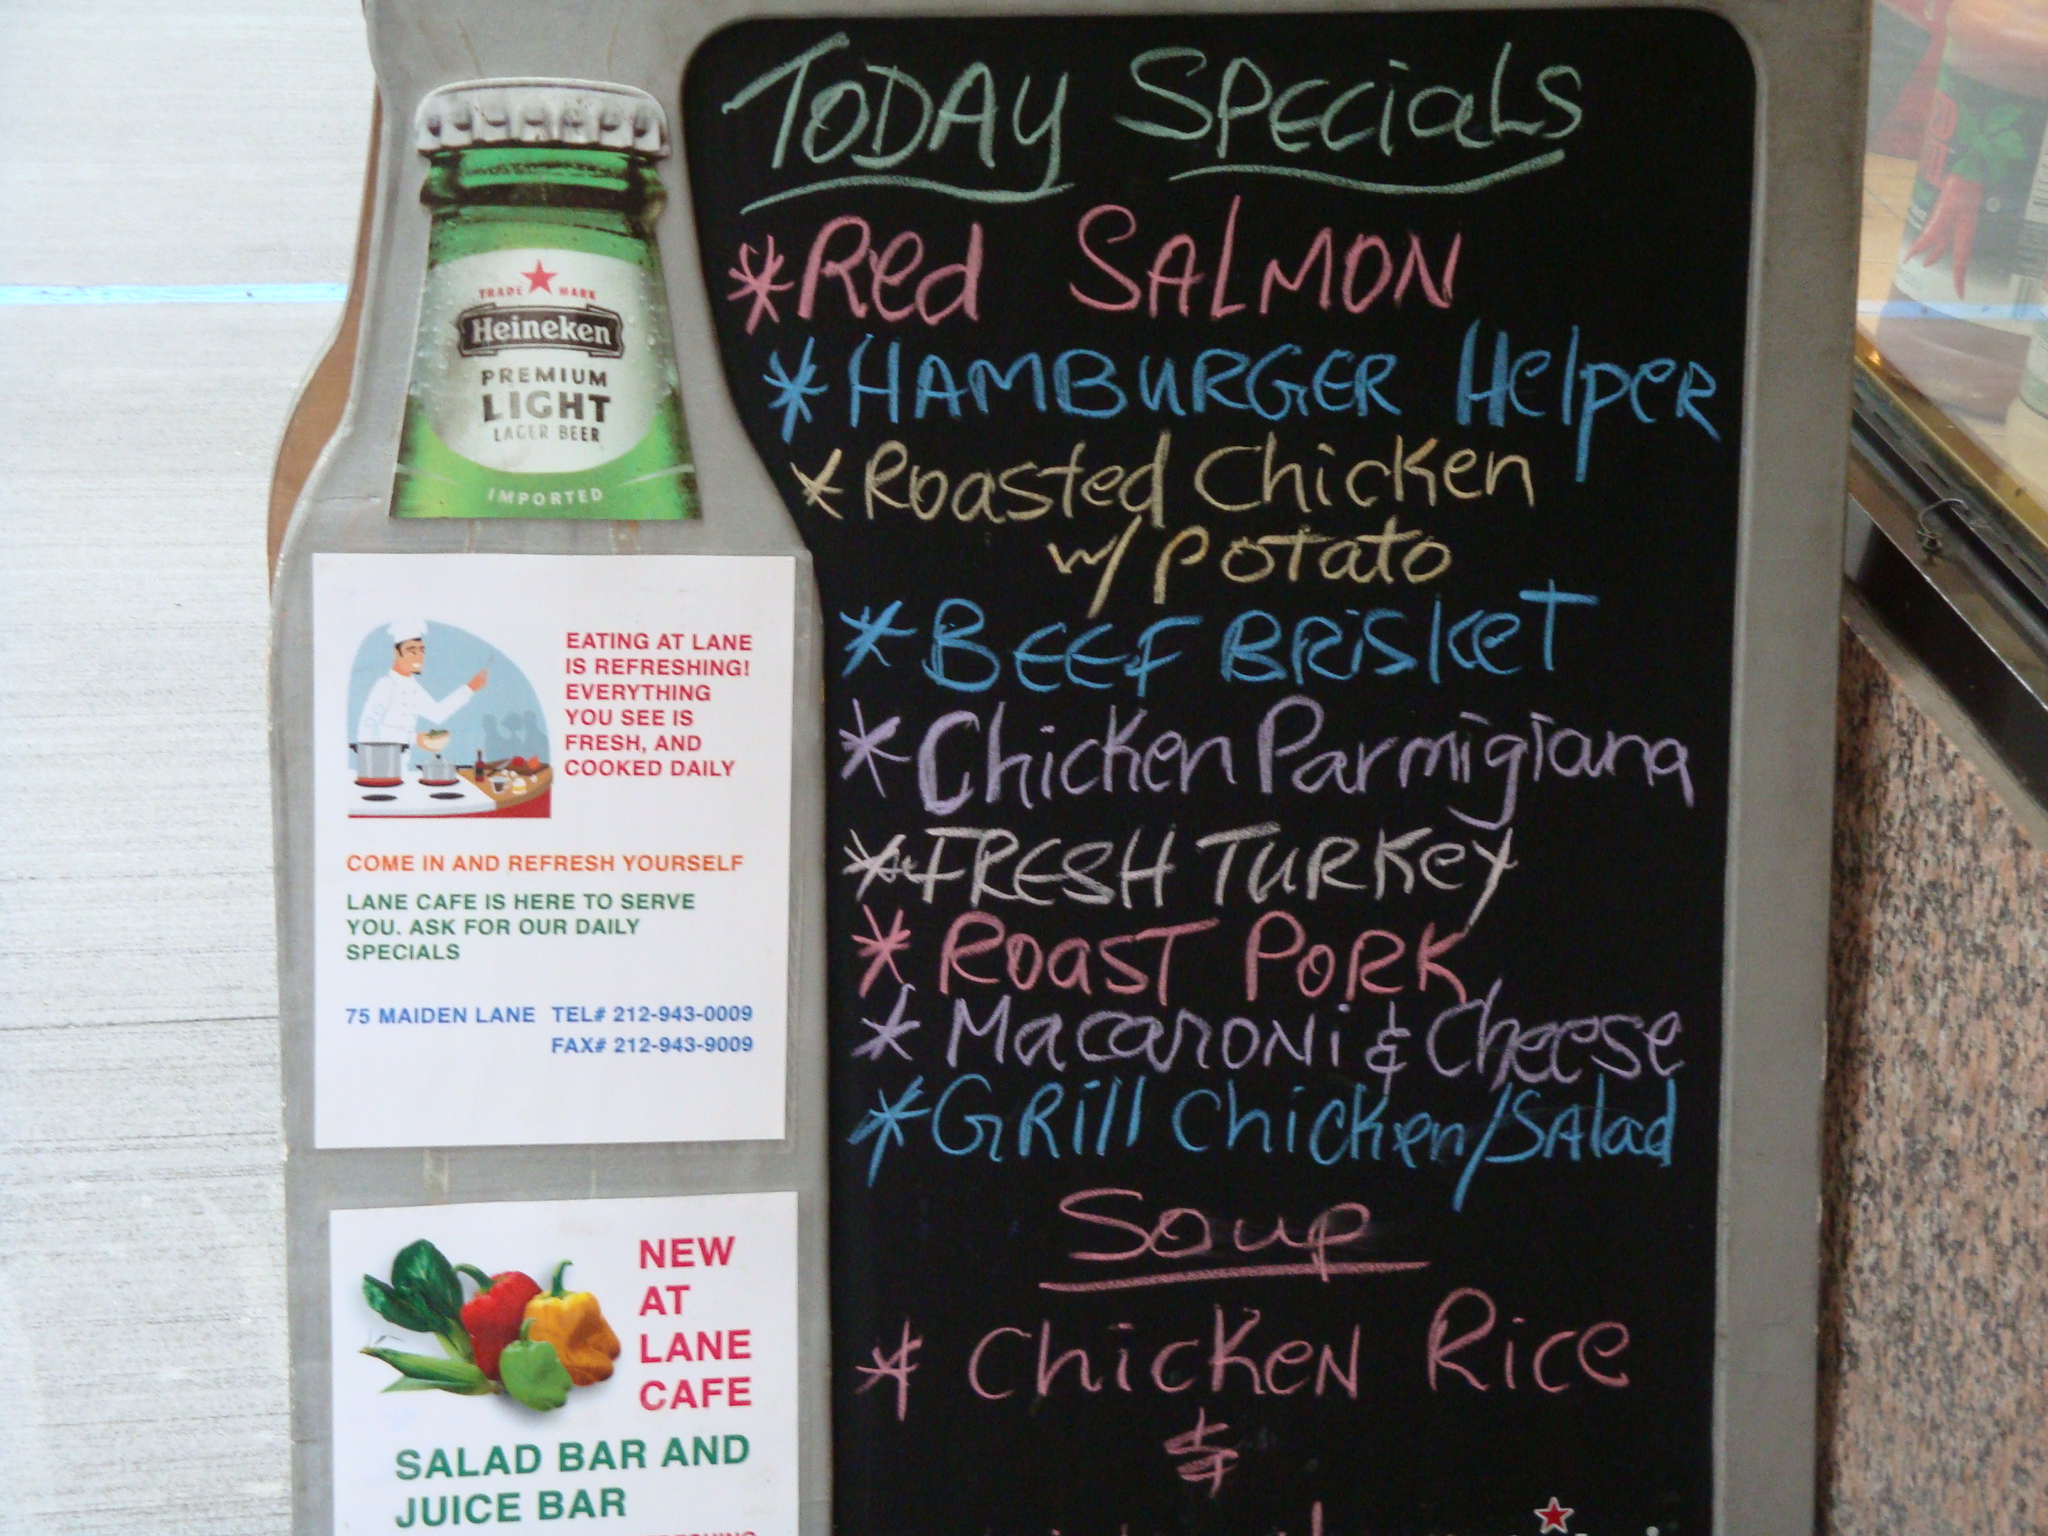 TRADE MARK
Heineken
PREMIUM
LIGHT
LAGER BEER
IMPORTED
EATING AT LANE
IS REFRESHING!
EVERYTHING
YOU SEE IS
FRESH, AND
COOKED DAILY
COME IN AND REFRESH YOURSELF
LANE CAFE IS HERE TO SERVE
YOU. ASK FOR OUR DAILY
SPECIALS
75 MAIDEN LANE TEL# 212-943-0009
FAX# 212-943-9009
NEW
AT
LANE
CAFE
SALAD BAR AND
JUICE BAR
TODAY SPECiaLS
* Red SALMON
* HAMBURGER HelpeR
* Roasted Chicken
w/ potato
* BEEF BRisKeT
* Chicken Parmigiana
* FRESH TURKey
* ROAST PORK
* MacaroNi & Cheese
* GRill Chicken/SAlad
Soup
* ChicKeN Rice
&